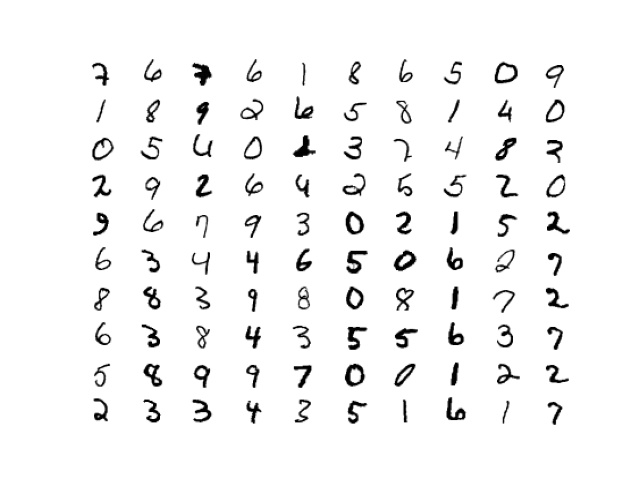 7 6 7 6 1 8 6 5 0 9
1 8 9 2 6 5 8 1 4 0
0 5 4 0 1 3 7 4 8 3
2 9 2 6 4 2 5 5 2 0
9 6 7 9 3 0 2 1 5 2
6 3 4 4 6 5 0 6 2 7
8 8 3 9 8 0 8 1 7 2
6 3 8 4 3 5 5 6 3 7
5 8 9 9 7 0 0 1 2 2
2 3 3 4 3 5 1 6 1 7